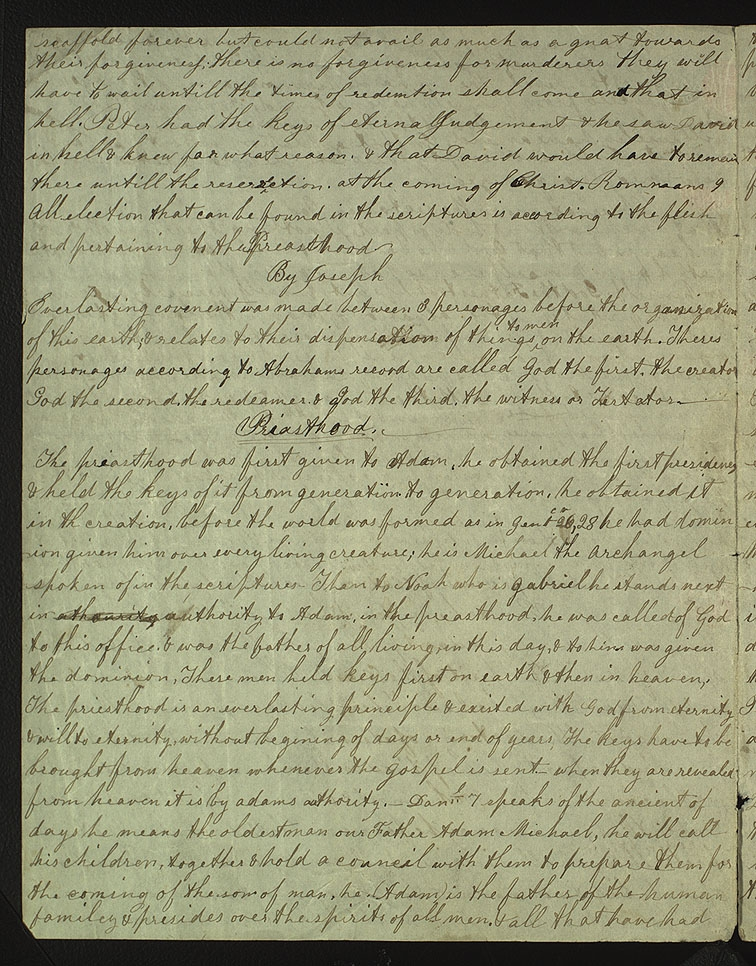 scaffold forever but could not avail as much as a gnat towards
their forgiveness; there is no forgiveness for murderers they will
have to wait untill the times of redemtion shall come and that in
hell. Peter had the keys of eternal Judgement & he saw David
in hell & knew for what reason. & that David would have to remain
there untill the reserection. at the coming of Christ. Romnaans 9
All election that can be found in the scriptures is acording to the flesh
and pertaining to the Preasthood
By Joseph
Everlasting covenent was made between 3 personages before the organization
of this earth, & relates to their dispensation of things to men on the earth. Theres
personages according to Abrahams recood are called God the first. the creator
God the second. the redeamer. & God the third. the witness or Testator
Priasthood.
The preasthood was first given to Adam, he obtained the first presidency
& held the keys of it from generation to generation, he obtained it
in th creation, before the world was formed as in Gen 1st 26, 28 he had domin
ion given him over every living creature; he is Michael the archangel
spoken of in the scriptures Then to Noah who is gabriel he stands next
in athaurity authority to Adam, in the preasthood, he was called of God
to this office, & was the father of all, living, in this day, & to him was given
the dominion, These men held keys first on earth & then in heaven,
The priesthood is an everlasting principle & existed with God from eternity
& will to eternity, without begining of days or end of years, The keys have to be
brought from heaven whenever the gospel is sent when they are revealed
from heaven it is by adams athority. — Danl 7 speaks of the ancient of
days he means the oldest man our Father Adam Michael, he will call
his children, together & hold a council with them to prepare them for
the coming of the son of man. he (Adam) is the father of the human
familey & presides over the spirits of all men. & all that have had